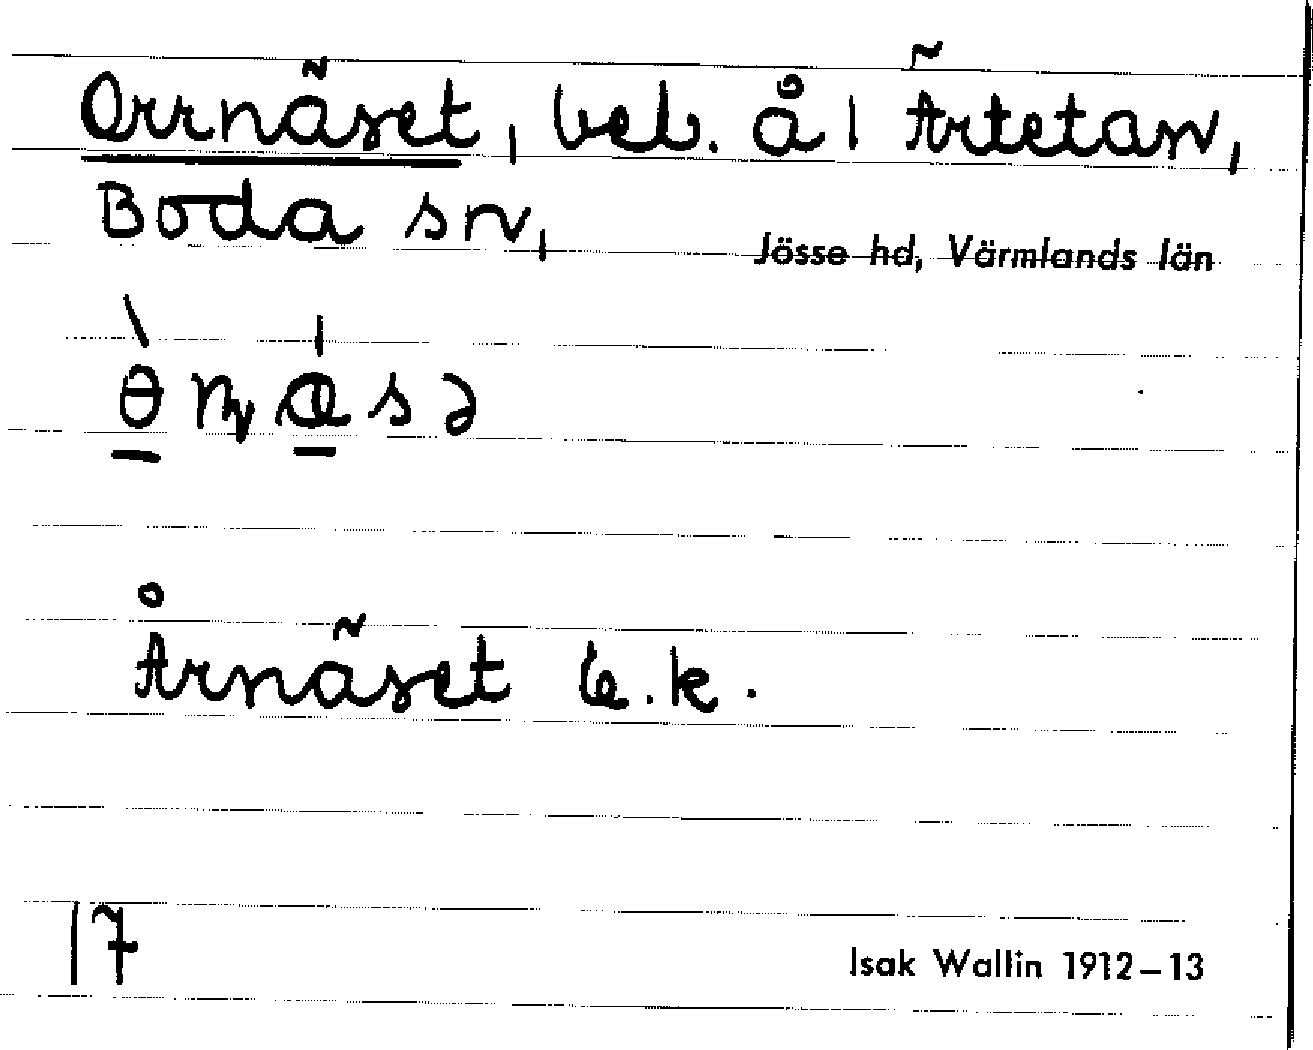 Orrnäset, beb. å 1 Ärtetan,
Boda sn,
Jösse hd, Värmlands län
Årnäset e.k.
17
Isak Wallin 1912–13